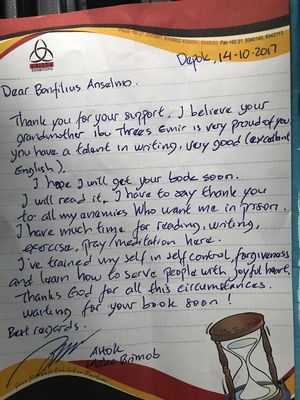 EXHIBITIONS
Depok, 14-10-2017
Dear Bonfilius Anselmo.
Thank you for your support. I believe your
grandmother ibu Threes Emir is very proud of you,
you have a talent in writing, very good (excellent
English).
I hope I will get your book soon.
I will read it. I have to say thank you
to all my enamies who want me in prison.
I have much time for reading, writing,
exercise, pray/meditation here.
I've trained my self in self control, forgiveness
and learn how to serve people with joyful heart,
Thanks God for all this circumstances.
waiting for your book soon!
Best regards.
Ahok
Mako Brimob